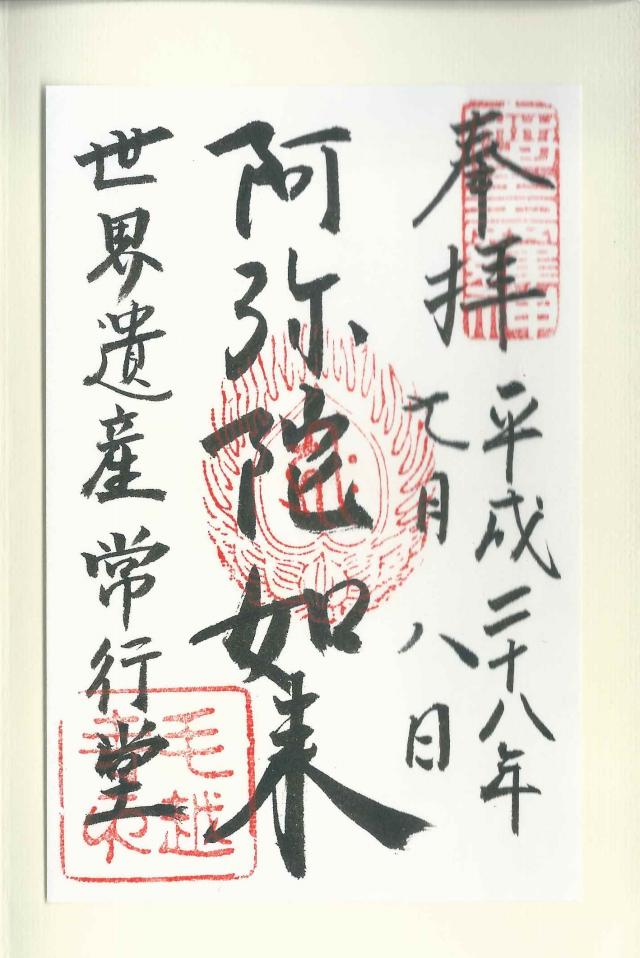 奉拝
平成二十八年
七月八日
阿弥陀如来
世界遺産 常行堂
毛越
寺印